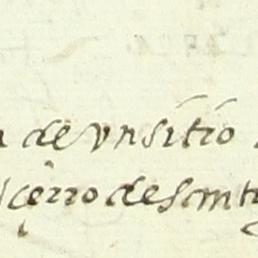 de vn sitio
çerro de sant